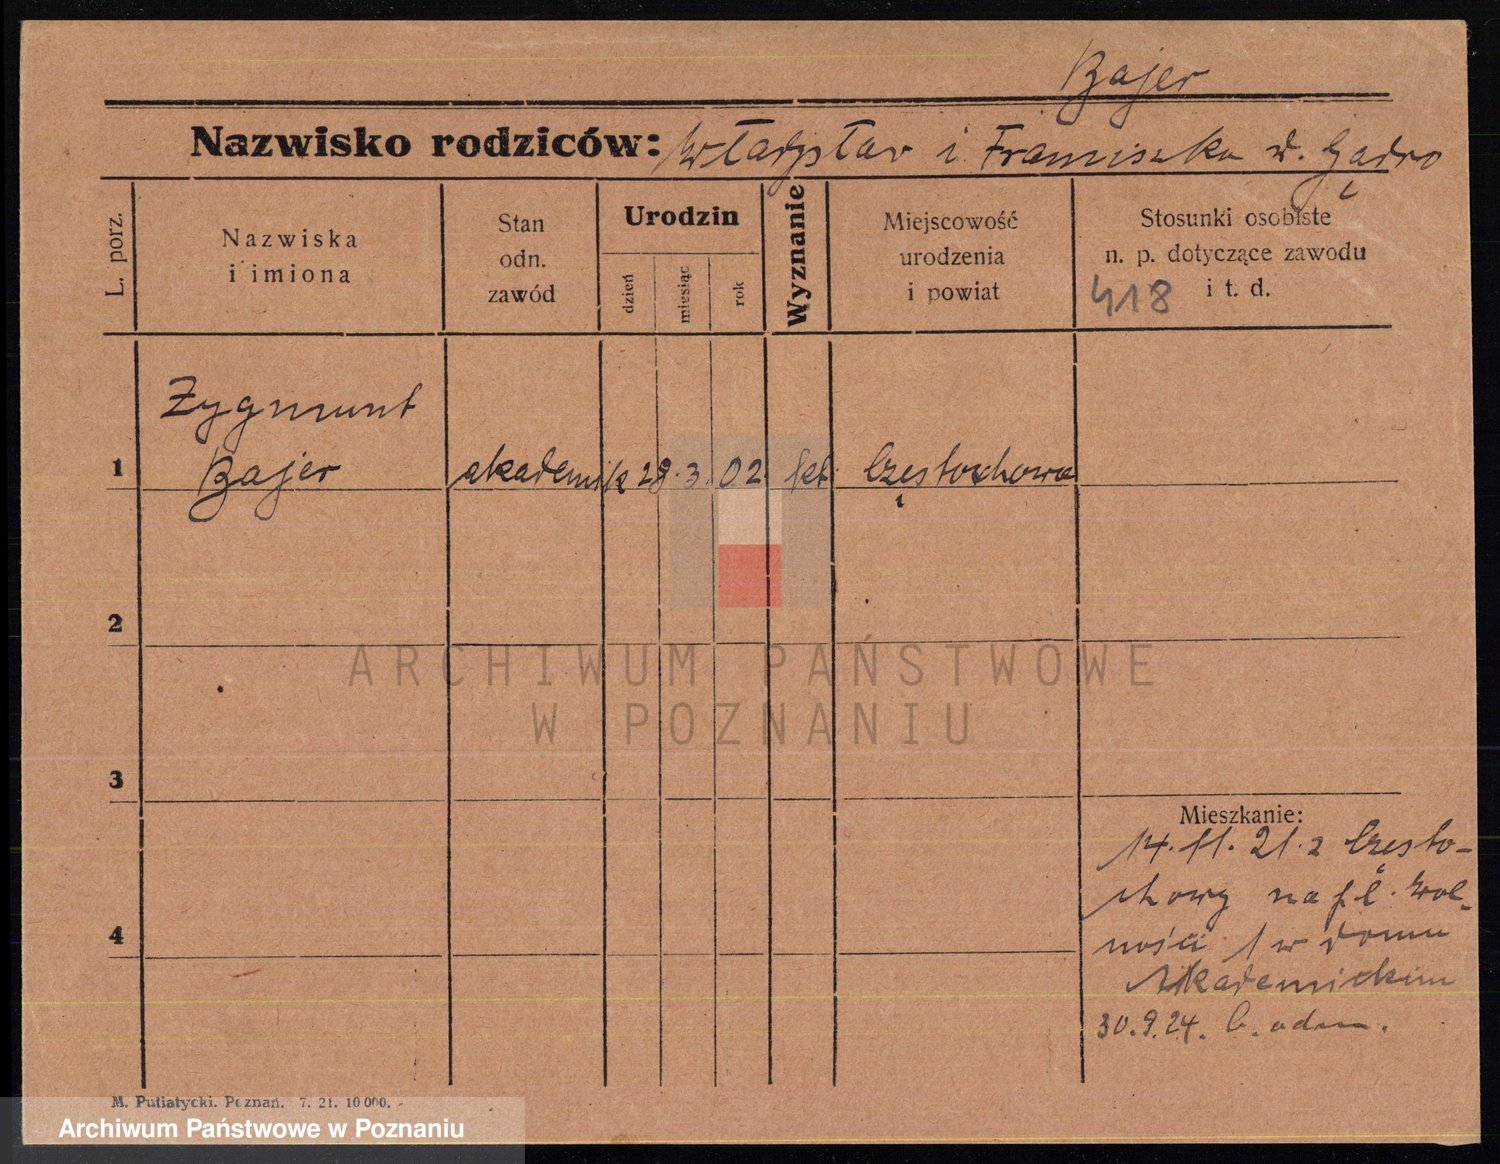 Bajer
Nazwisko rodziców: Władysław i Franciszka d. Gądro
L. porz.
Nazwiska
i imiona
Stan
odn.
zawód
Urodzin
dzień
miesiąc
rok
Wyznanie
Miejscowość
urodzenia
i powiat
Stosunki osobiste
n. p. dotyczące zawodu
i t. d.
418
1
Zygmunt
Bajer
akademik 28. 3. 02. kt. Częstochowa
2
3
4
Mieszkanie:
14. 11. 21. z Często-
chowy na pl. Wol-
ności 1 w domu
Akademickim
30. 9. 24. b. odm.
M. Putiatycki. Poznań. 7. 21. 10 000.
ARCHIWUM PAŃSTWOWE
W POZNANIU
Archiwum Państwowe w Poznaniu